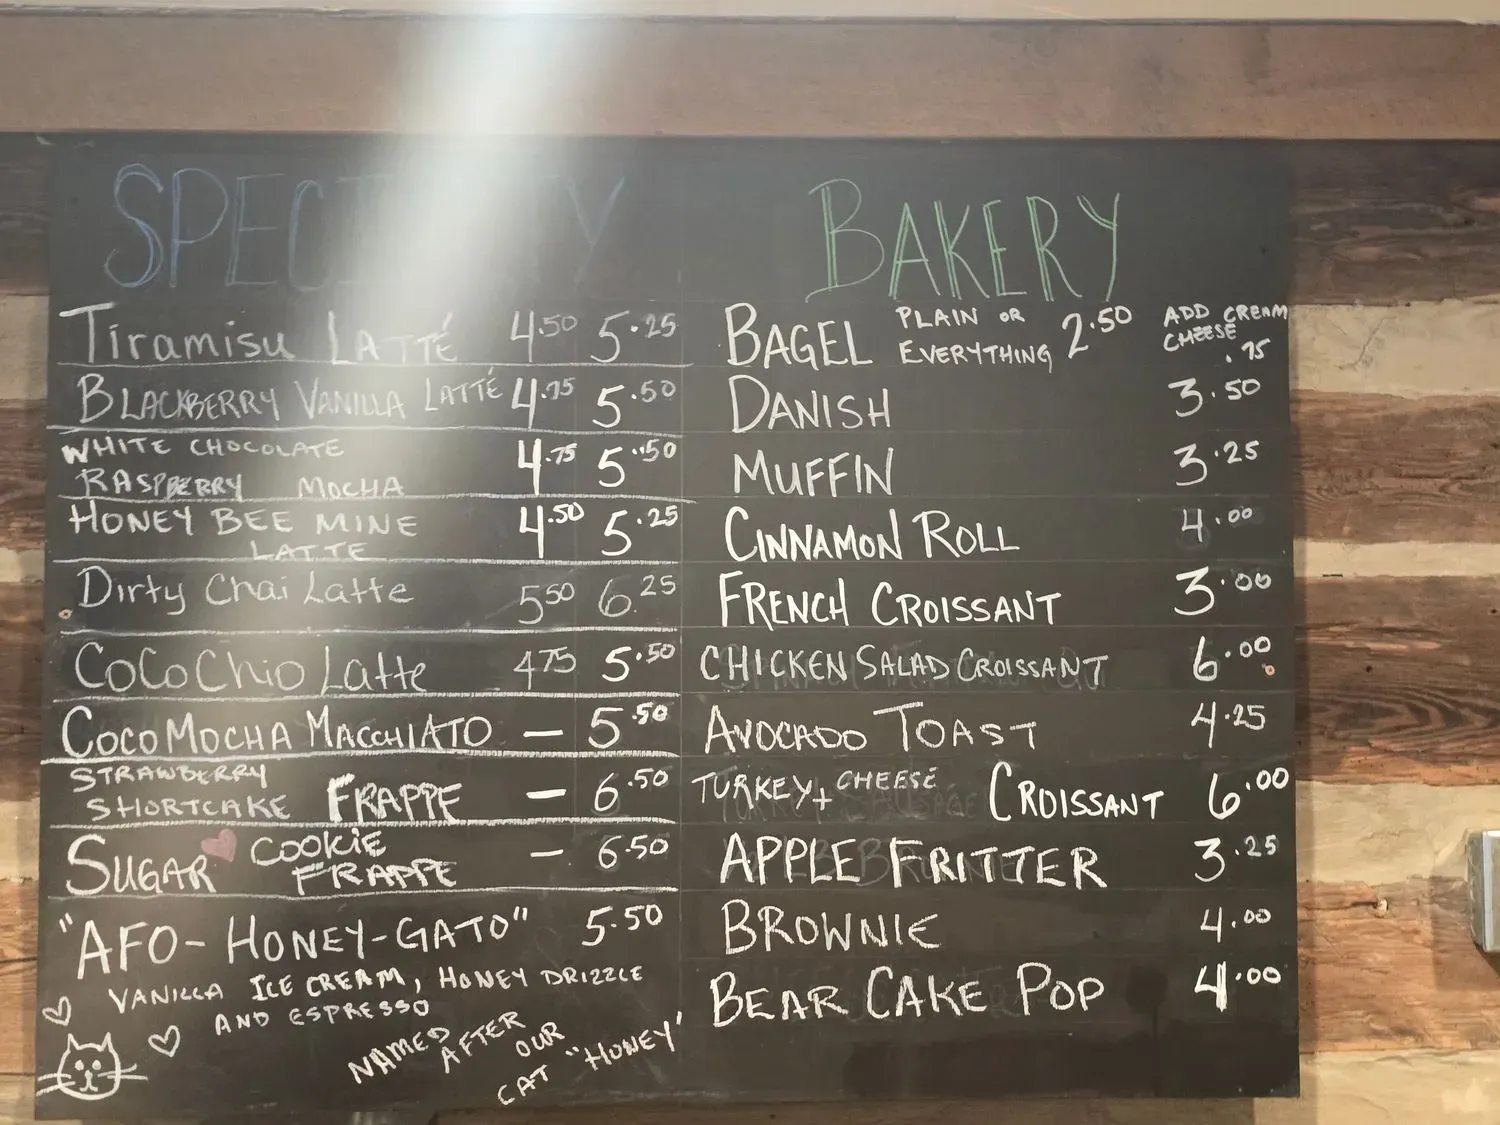 SPECIALTY
Tiramisu LATTÉ 4.50 5.25
BLACKBERRY VANILLA LATTÉ 4.75 5.50
WHITE CHOCOLATE
RASPBERRY MOCHA 4.75 5.50
HONEY BEE MINE
LATTE 4.50 5.25
Dirty Chai Latte 5.50 6.25
CoCoChio Latte 4.75 5.50
COCO MOCHA MACCHIATO – 5.50
STRAWBERRY
SHORTCAKE FRAPPE – 6.50
SUGAR COOKIE
FRAPPE – 6.50
"AFO-HONEY-GATO" 5.50
VANILLA ICE CREAM, HONEY DRIZZLE
AND ESPRESSO
NAMED
AFTER
OUR
CAT "HONEY"
BAKERY
BAGEL PLAIN OR
EVERYTHING 2.50 ADD CREAM
CHEESE
.75
DANISH 3.50
MUFFIN 3.25
CINNAMON ROLL 4.00
FRENCH CROISSANT 3.00
CHICKEN SALAD CROISSANT 6.00
AVOCADO TOAST 4.25
TURKEY + CHEESE CROISSANT 6.00
APPLE FRITTER 3.25
BROWNIE 4.00
BEAR CAKE POP 4.00